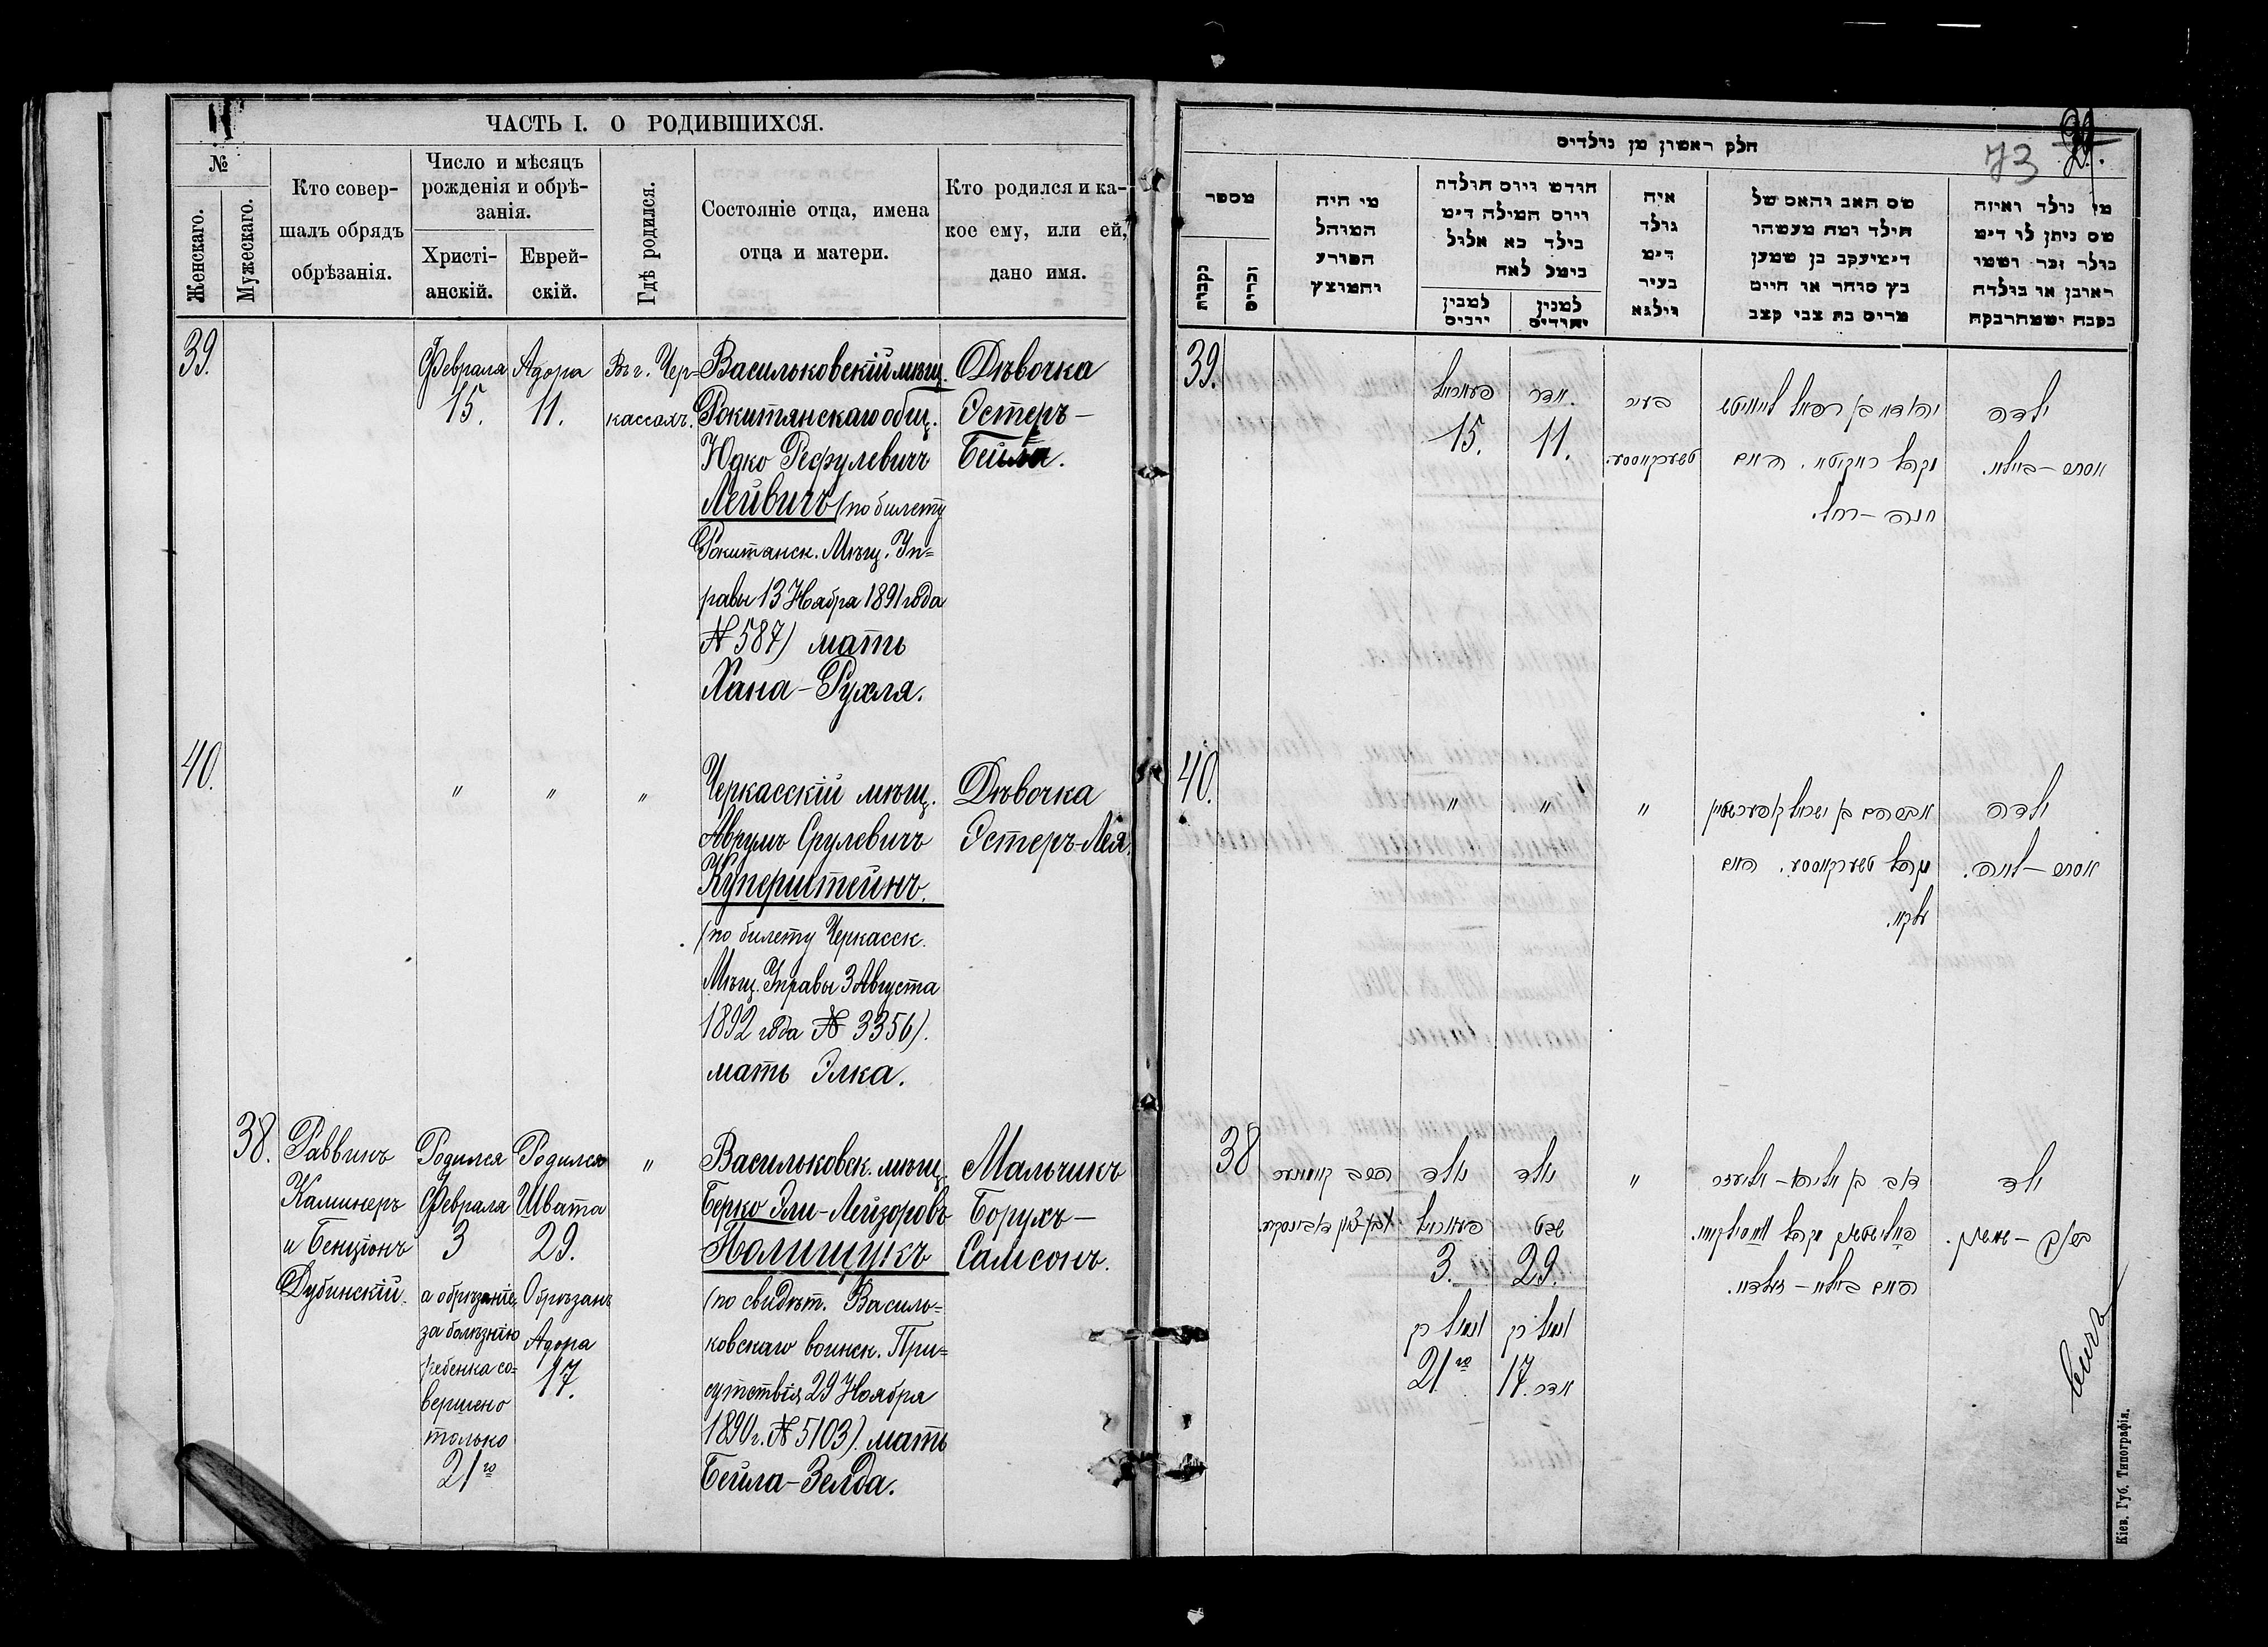 ЧАСТЬ I. О РОДИВШИХСЯ.
№
Женскаго.
Мужескаго.
Кто совер-
шалъ обрядъ
обрѣзанія.
Число и мѣсяцъ
рожденія и обрѣ-
занія.
Христі-
анскій.
Еврей-
скій.
Гдѣ родился.
Состояніе отца, имена
отца и матери.
Кто родился и ка-
кое ему, или ей,
дано имя.
39.
Февраля
15.
Адора
11.
Въ г. Чер-
кассахъ.
Васильковскій мѣщ.
Рокитянскаго общ.
Юдко Рефулевичъ
Лейвичъ (по билету
Рокитанск. Мѣщ. Уп=
равы 13 Ноября 1891 года
№ 587) мать
Хана-Рухля.
Дѣвочка
Эстеръ-
Бейла.
40.
"
"
"
Черкасскій мѣщ.
Аврумъ Срулевичъ
Куперштейнъ.
(по билету Черкасск.
Мѣщ. Управы 3 Августа
1892 года № 3356).
мать Элка.
Дѣвочка
Эстеръ-Лея.
38.
Раввинъ
Каминеръ
и Бенціонъ
Дубинскій.
Родился
Февраля
3
а обрѣзаніе
за болѣзнію
ребенка со-
вершено
только
21го
Родился
Швата
29.
Обрѣзанъ
Адора
17.
"
Васильковск. мѣщ.
Берко Эли-Лейзоровъ
Полищукъ
(по свидѣт. Василь=
ковскаго воинск. При=
сутствія 29 Ноября
1890 г. № 5103). мать
Бейла-Зелда.
Мальчикъ
Борухъ-
Самсонъ.
חלק ראשון מן נולדים
73
מספר
נקבות
זכרים
מי היה
המוהל
הפורע
והמוצץ
חודש ויום הולדת
ויום המילה דימ
בילד כא אלול
בימל לאח
למנין
יהודים
איה
נולד
דימ
בעיר
ווילנא
שם האב והאם של
הילד ומה מעשהו
דימיעקב בן שמעון
כץ סוחר או חייט
מרים בת צבי קצב
מי נולד ואיזה
שם ניתן לו דימ
נולד זכר ושמו
ראובן או נולדה
נקבה ושמה רבקה
39.
פעווראל
15.
אדר
11.
בעיר
טשערקאסס.
יודא בן רפאל לייוויטש
וקהל ראקיטא. האם
חנה-רחל.
ילדה
אסתר-ביילא.
40.
"
"
"
אברהם בן ישראל קופערשטיין
וקהל טשערקאסס. האם
עלקא.
ילדה
אסתר-לאה.
38
הרב קאמינער
ובן-ציון דובינסקי.
נולד
פעווראל
3.
ונימול רק
21го
נולד
שבט
29.
ונימול רק
אדר 17.
"
דוב בן אליהו-אליעזר
פאלישטשוק וקהל וואסילקאוו.
האם ביילא-זעלדא.
ילד
ברוך-שמשון.
Кіев. Губ. Типографія.